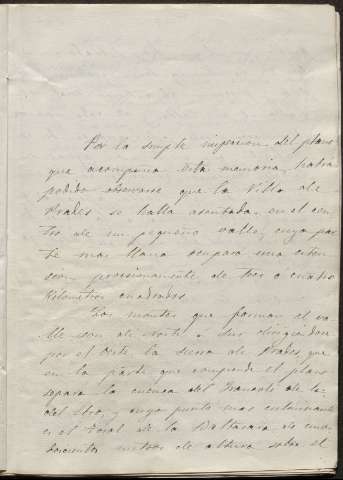 Por la simple inspeccion del plano
que acompaña esta memoria, habrá
podido observarse que la Villa de
Prades, se halla asentada en el cen-
tro de un pequeño valle, cuya par-
te mas llana ocupará una esten-
sion proximamente de tres a cuatro
Kilometros cuadrados.
Los montes que forman el va-
lle son de Norte a Sur
por el Oeste la sierra de Prades, que
en la parte que comprende el plano
separa la cuenca del Francolí de la
del Ebro, y cuyo punto mas culminante
es el Tosal de la Baltasara de
doscientos metros de altura sobre el